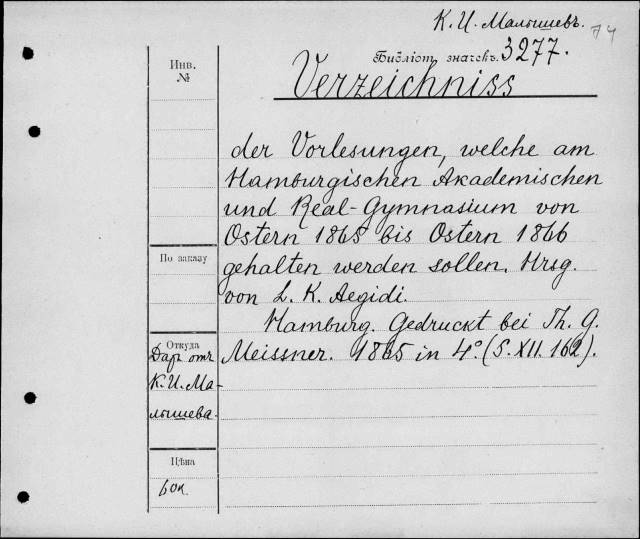 К. И. Малышевъ. 74
Библіот. значекъ. 3277.
Инв.
№
Verzeichniss
der Vorlesungen, welche am
Hamburgischen Akademischen
und Real-Gymnasium von
Ostern 1865 bis Ostern 1866
По заказу
gehalten werden sollen. Hrsg.
von L. K. Aegidi.
Hamburg. Gedruckt bei Th. G.
Meissner. 1865 in 4º. (S. XII. 162).
Откуда
Даръ отъ
К. И. Ма-
лышева.
Цѣна
60к.